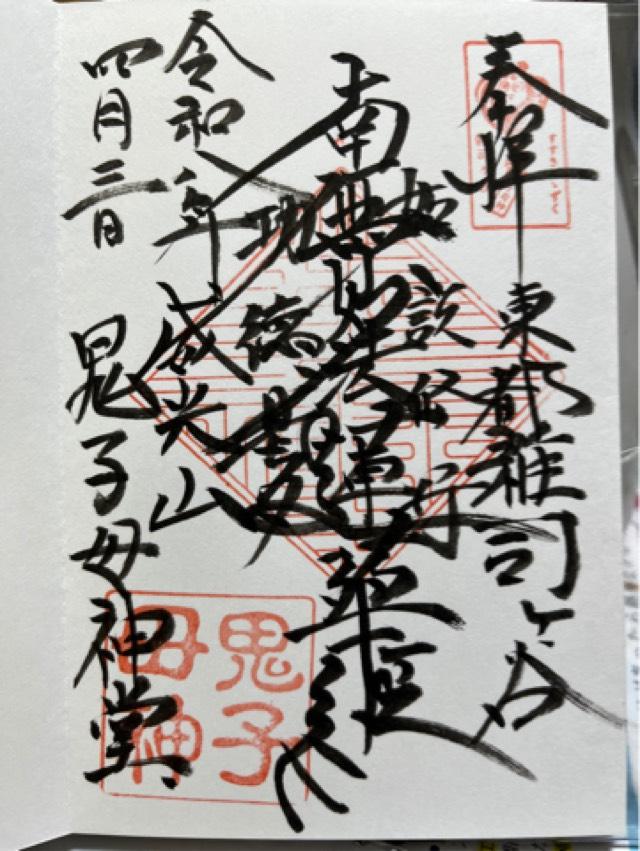 奉拝 東都雑司ヶ谷
如説修行
南無妙法蓮華経
功徳
令和年 威光山
四月三日 鬼子母神堂
鬼子
母神